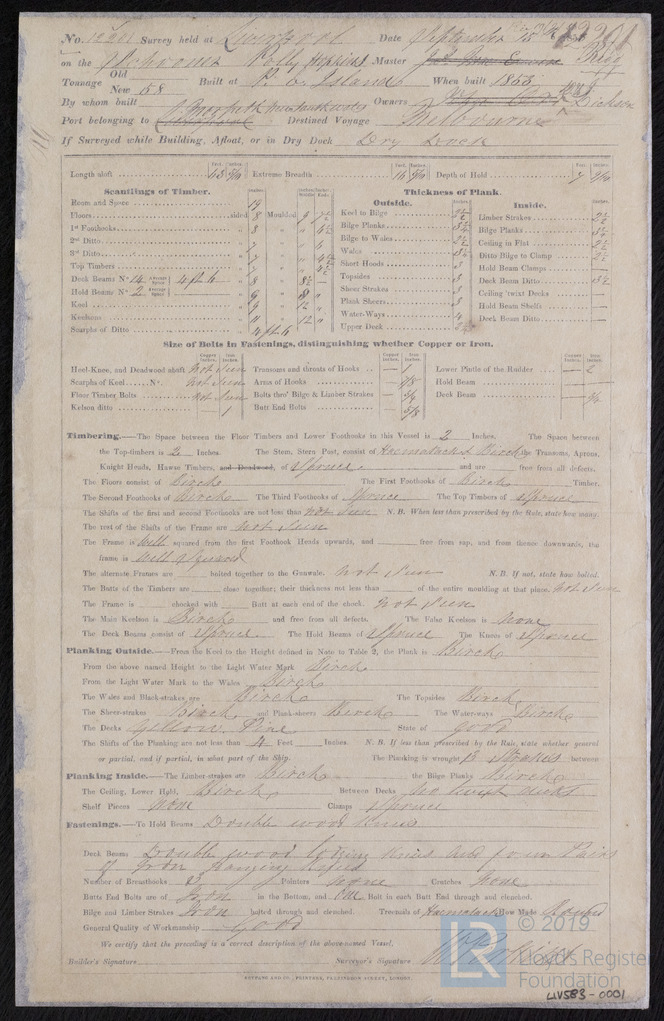 No. Survey held at Liverpool Date September 15
on the Schooner Polly Hopkins Master
Tonnage Old New 158 Built at P. E. Island When built 1853
By whom built Owners Dickson
Port belonging to Liverpool Destined Voyage Melbourne
If Surveyed while Building, Afloat, or in Dry Dock Dry Dock
Length aloft Feet. Inches. Extreme Breadth Feet. Inches. Depth of Hold Feet. Inches.
Scantlings of Timber. Thickness of Plank.
Outside. Inside.
Room and Space 19 Keel to Bilge 2½ Limber Strakes 2½
Floors sided 8 Moulded 9 Bilge Planks 3½ Bilge Planks 3½
1st Foothooks 8 Bilge to Wales 2½ Ceiling in Flat 2½
2nd Ditto 7 Wales 3½ Ditto Bilge to Clamp 2½
3rd Ditto 7 Short Hoods 3 Hold Beam Clamps —
Top Timbers 7 Topsides 3 Deck Beam Ditto
Deck Beams No. 14 Average Space 4 ft 6 8 Sheer Strakes 3 Ceiling 'twixt Decks —
Hold Beams No. 2 Average Space — 9 Plank Sheers 3 Hold Beam Shelfs —
Keel Water-Ways 4 Deck Beam Ditto —
Keelsons 11 12 Upper Deck
Scarphs of Ditto 4 ft 6
Size of Bolts in Fastenings, distinguishing whether Copper or Iron.
Copper Inches. Iron Inches. Copper Inches. Iron Inches. Copper Inches. Iron Inches.
Heel-Knee, and Deadwood abaft not seen Transoms and throats of Hooks 1 Lower Pintle of the Rudder 2
Scarphs of Keel No. not seen Arms of Hooks 7/8 Hold Beam
Floor Timber Bolts not seen Bolts thro' Bilge & Limber Strakes 3/4 Deck Beam 3/4
Kelson ditto 1 Butt End Bolts 5/8
Timbering.—The Space between the Floor Timbers and Lower Foothooks in this Vessel is 2 Inches. The Space between
the Top-timbers is 2 Inches. The Stem, Stern Post, consist of Hacmatack & Birch the Transoms, Aprons,
Knight Heads, Hawse Timbers, and Deadwood, of Spruce and are free from all defects.
The Floors consist of Birch The First Foothooks of Birch Timber.
The Second Foothooks of Birch The Third Foothooks of Spruce The Top Timbers of Spruce
The Shifts of the first and second Foothooks are not less than not seen N. B. When less than prescribed by the Rule, state how many.
The rest of the Shifts of the Frame are not seen
The Frame is well squared from the first Foothook Heads upwards, and free from sap, and from thence downwards, the
frame is well squared
The alternate Frames are bolted together to the Gunwale. not seen N. B. If not, state how bolted.
The Butts of the Timbers are close together; their thickness not less than of the entire moulding at that place. not seen
The Frame is chocked with Butt at each end of the chock. not seen
The Main Keelson is Birch and free from all defects. The False Keelson is none
The Deck Beams consist of Spruce The Hold Beams of Spruce The Knees of Spruce
Planking Outside.—From the Keel to the Height defined in Note to Table 2, the Plank is Birch
From the above named Height to the Light Water Mark Birch
From the Light Water Mark to the Wales Birch
The Wales and Black-strakes are Birch The Topsides Birch
The Sheer-strakes Birch and Plank-sheers Birch The Water-ways Birch
The Decks Yellow Pine State of good
The Shifts of the Planking are not less than 4 Feet Inches. N. B. If less than prescribed by the Rule, state whether general
or partial, and if partial, in what part of the Ship. The Planking is wrought 3 Strakes between
Planking Inside.—The Limber-strakes are Birch the Bilge Planks Birch
The Ceiling, Lower Hold, Birch Between Decks no twixt decks
Shelf Pieces none Clamps Spruce
Fastenings.—To Hold Beams Double wood Knees
Deck Beams Double wood lodging knees and four Pairs
of Iron Hanging Knees
Number of Breasthooks Pointers none Crutches none
Butts End Bolts are of Iron in the Bottom, and one Bolt in each Butt End through and clenched.
Bilge and Limber Strakes Iron bolted through and clenched. Treenails of Hacmatack How Made Round
General Quality of Workmanship good
We certify that the preceding is a correct description of the above-named Vessel.
Builder's Signature Surveyor's Signature
SEYFANG AND CO., PRINTERS, FARRINGDON STREET, LONDON.
© 2019
LR Lloyd's Register
Foundation
LLV583-0001